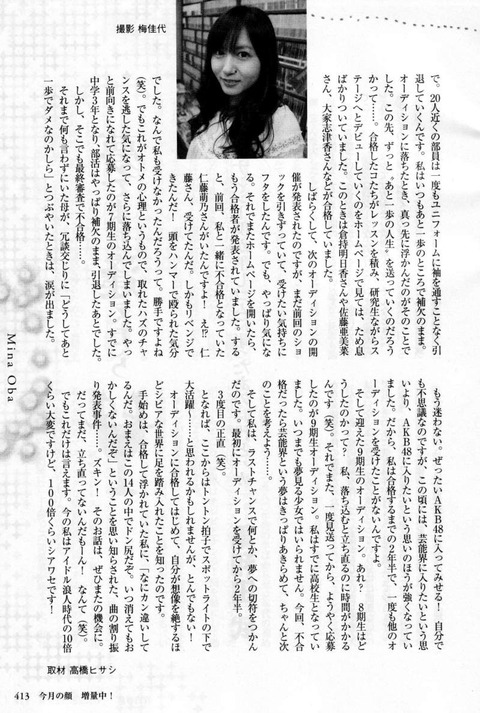 撮影 梅佳代
で。20人近くの部員は一度もユニフォームに袖を通すことなく引
退していくんです。私はいつもあと一歩のところで補欠のまま。
オーディションに落ちたとき、真っ先に浮かんだのがそのことで
した。この先、ずっと、あと一歩の人生〟を送っていくのだろう
かって……。合格したコたちがレッスンを積み、研究生ながらス
テージへとデビューしていくのをホームページで見ては、ため息
ばかりついていました。このときは倉持明日香さんや佐藤亜美菜
さん、大家志津香さんなどが合格していました。
しばらくして、次のオーディションの開
催が発表されたのですが、まだ前回のショ
ックを引きずっていて、受けたい気持ちに
フタをしたんです。でも、やっぱり気にな
る。それでまたホームページを開いたら、
もう合格者が発表されていました。する
と、前回、私と一緒に不合格となっていた
仁藤萌乃さんがいたんですよ！ え!? 仁
藤さん、受けてたんだ。しかもリベンジで
きたんだ！ 頭をハンマーで殴られた気分
でした。なんで私も受けなかったんだろうって。勝手ですよね
（笑）。でもこれがオトメの心理というもので、取れたハズのチャ
ンスを逃した気になって、さらに落ち込んでしまいました。やっ
と前向きになれて応募したのが7期生のオーディション。すでに
中学3年となり、部活はやっぱり補欠のまま引退したあとでした。
しかし、そこでも最終審査で不合格……。
それまで何も言わずにいた母が、冗談交じりに「どうしてあと
一歩でダメなのかしら」とつぶやいたときは、涙が出ました。
もう迷わない。ぜったいAKB48に入ってみせる！ 自分で
も不思議なのですが、この頃には、芸能界に入りたいという思
いより、AKB48に入りたいという思いのほうが強くなってい
ました。だから、私は合格するまでの2年半で、一度も他のオ
ーディションを受けたことがないんですよ。
そして迎えた9期生のオーディション。あれ？ 8期生はど
うしたのかって？ 私、落ち込むと立ち直るのに時間がかかる
んです（笑）。それでまた、一度見送ってから、ようやく応募
したのが9期生オーディション。私はすでに高校生となってい
ました。いつまでも夢見る少女ではいられません。今回、不合
格だったら芸能界という夢はきっぱりあきらめて、ちゃんと次
のことを考えよう……。
そして私は、ラストチャンスで何とか、夢への切符をつかん
だのです。最初にオーディションを受けてから2年半。
3度目の正直（笑）。
となれば、ここからはトントン拍子でスポットライトの下で
大活躍〜！と思われるかもしれませんが、とんでもない！
オーディションに合格してはじめて、自分が想像を絶するほ
どシビアな世界に足を踏み入れたことを知ったのです。
手始めは、合格して浮かれていた私に、「なにカン違いして
るんだ。おまえはこの14人の中でドン尻だぞ。いつ消えてもお
かしくないんだぞ」ということを思い知らされた、曲の割り振
り発表事件……。ズキン！ そのお話は、ぜひまたの機会に。
だってまだ、立ち直ってないんだもーん！ なんて（笑）。
でもこれだけは言えます。今の私はアイドル浪人時代の10倍
くらい大変ですけど、100倍くらいシアワセです！
取材 高橋ヒサシ
Mina Oba
413 今月の顔 増量中！